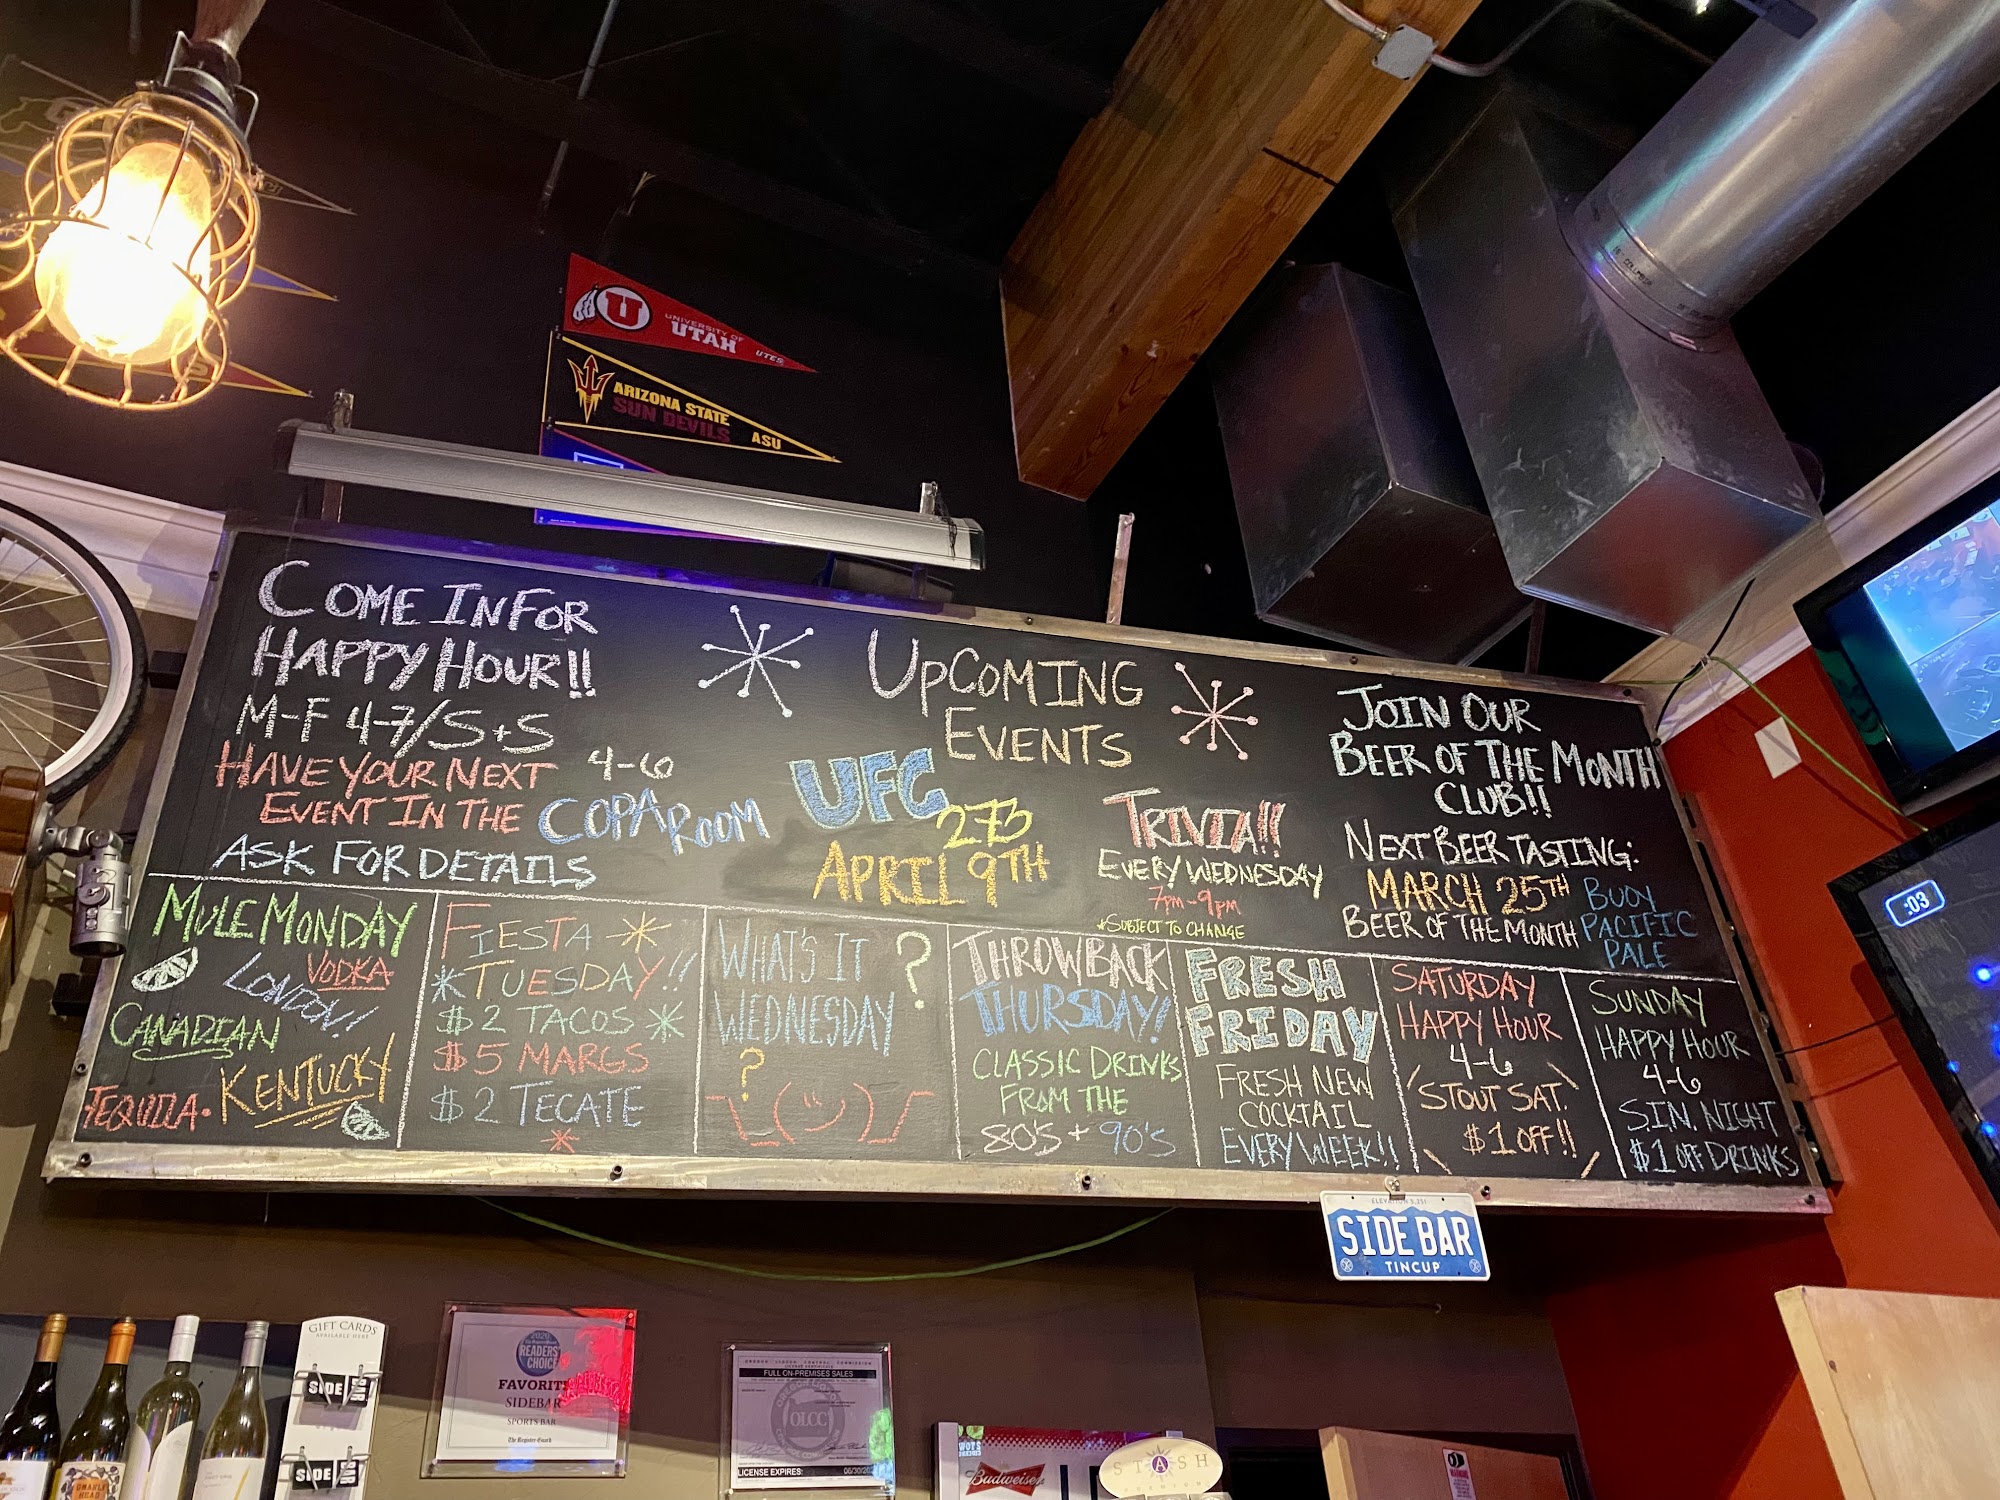 UNIVERSITY OF
UTAH
UTES
U
ARIZONA STATE
SUN DEVILS
ASU
COME IN FOR
HAPPY HOUR!!
M-F 4-7/S+S
4-6
HAVE YOUR NEXT
EVENT IN THE
COPA ROOM
ASK FOR DETAILS
UPCOMING
EVENTS
UFC
273
APRIL 9TH
TRIVIA!!
EVERY WEDNESDAY
7PM-9PM
*SUBJECT TO CHANGE
JOIN OUR
BEER OF THE MONTH
CLUB!!
NEXT BEER TASTING:
MARCH 25TH
BEER OF THE MONTH
BUOY
PACIFIC
PALE
MULE MONDAY
VODKA
LONDON!!
CANADIAN
KENTUCKY
TEQUILA.
FIESTA
TUESDAY!!
$2 TACOS
$5 MARGS
$2 TECATE
WHAT'S IT
WEDNESDAY
?
?
THROWBACK
THURSDAY!
CLASSIC DRINKS
FROM THE
80'S + 90'S
FRESH
FRIDAY
FRESH NEW
COCKTAIL
EVERY WEEK!!
SATURDAY
HAPPY HOUR
4-6
STOUT SAT.
$1 OFF!!
SUNDAY
HAPPY HOUR
4-6
S.I.N. NIGHT
$1 OFF DRINKS
:03
ELEVATION 5,251
SIDE BAR
TINCUP
GIFT CARDS
AVAILABLE HERE
SIDE BAR
SIDE BAR
2020
READERS'
CHOICE
FAVORITE
SIDEBAR
SPORTS BAR
The Register-Guard
OREGON LIQUOR CONTROL COMMISSION
FULL ON-PREMISES SALES
OLCC
LICENSE EXPIRES:
Budweiser
STASH